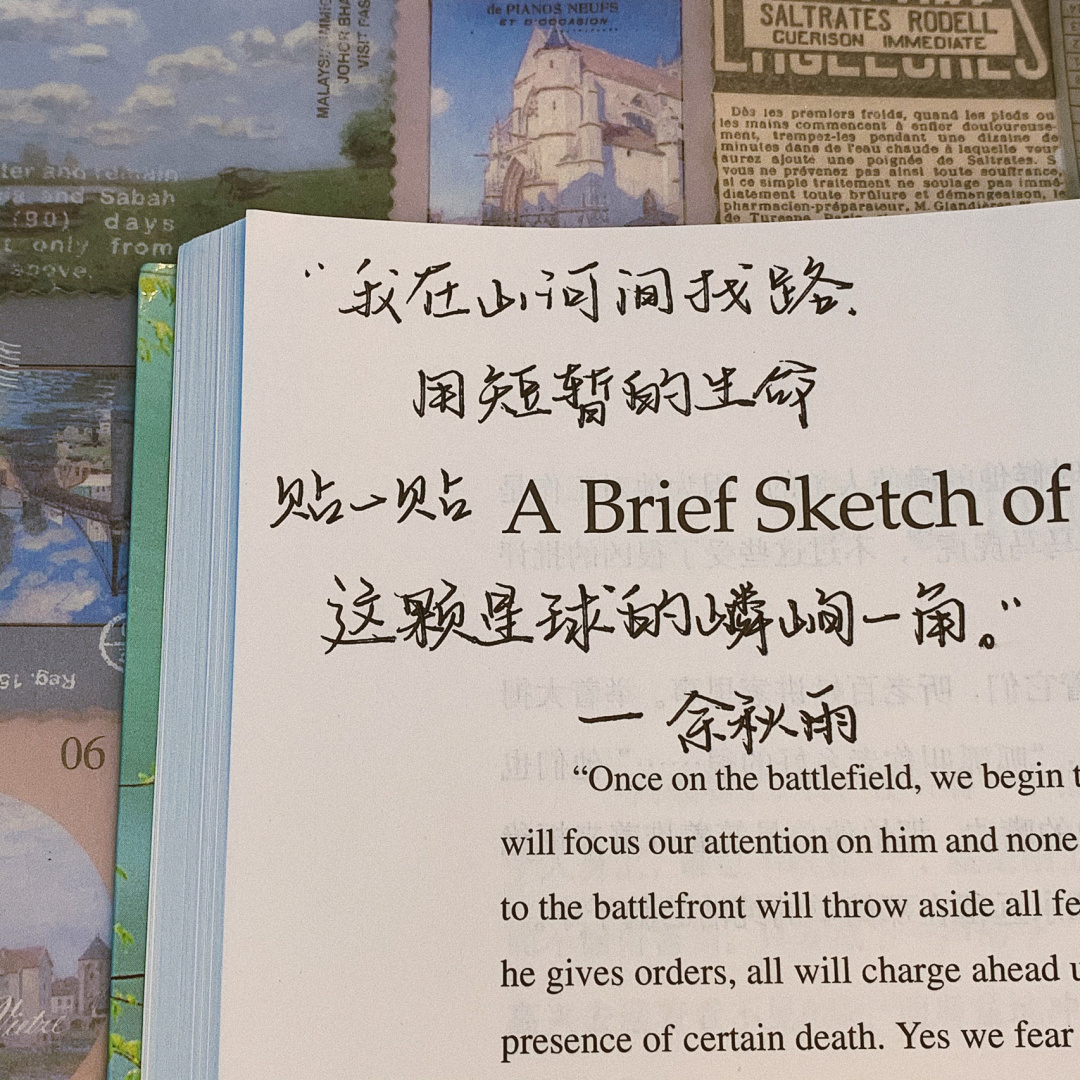 de PIANOS NEUFS
ET D'OCCASION
MALAYSIA IMMIG
JOHOR BHA
VISIT PAS
SALTRATES RODELL
GUERISON IMMEDIATE
ENGELURES
Dès les premiers froids, quand les pieds ou
les mains commencent à enfler douloureuse-
ment, trempez-les pendant une dizaine de
minutes dans de l'eau chaude à laquelle vous
aurez ajouté une poignée de Saltrates. S
vous ne prévenez pas ainsi toute souffrance,
si ce simple traitement ne soulage pas immé-
diatement toute brûlure et démangeaison, le
pharmacien-préparateur, M. Glandières
de Turenne, Paris
ter and remain
and Sabah
(90) days
t only from
above.
"我在山河间找路.
用短暂的生命
贴一贴
A Brief Sketch of
这颗星球的嶙峋一角。"
— 余秋雨
"Once on the battlefield, we begin t
will focus our attention on him and none
to the battlefront will throw aside all fe
he gives orders, all will charge ahead u
presence of certain death. Yes we fear
Reg. 15
06